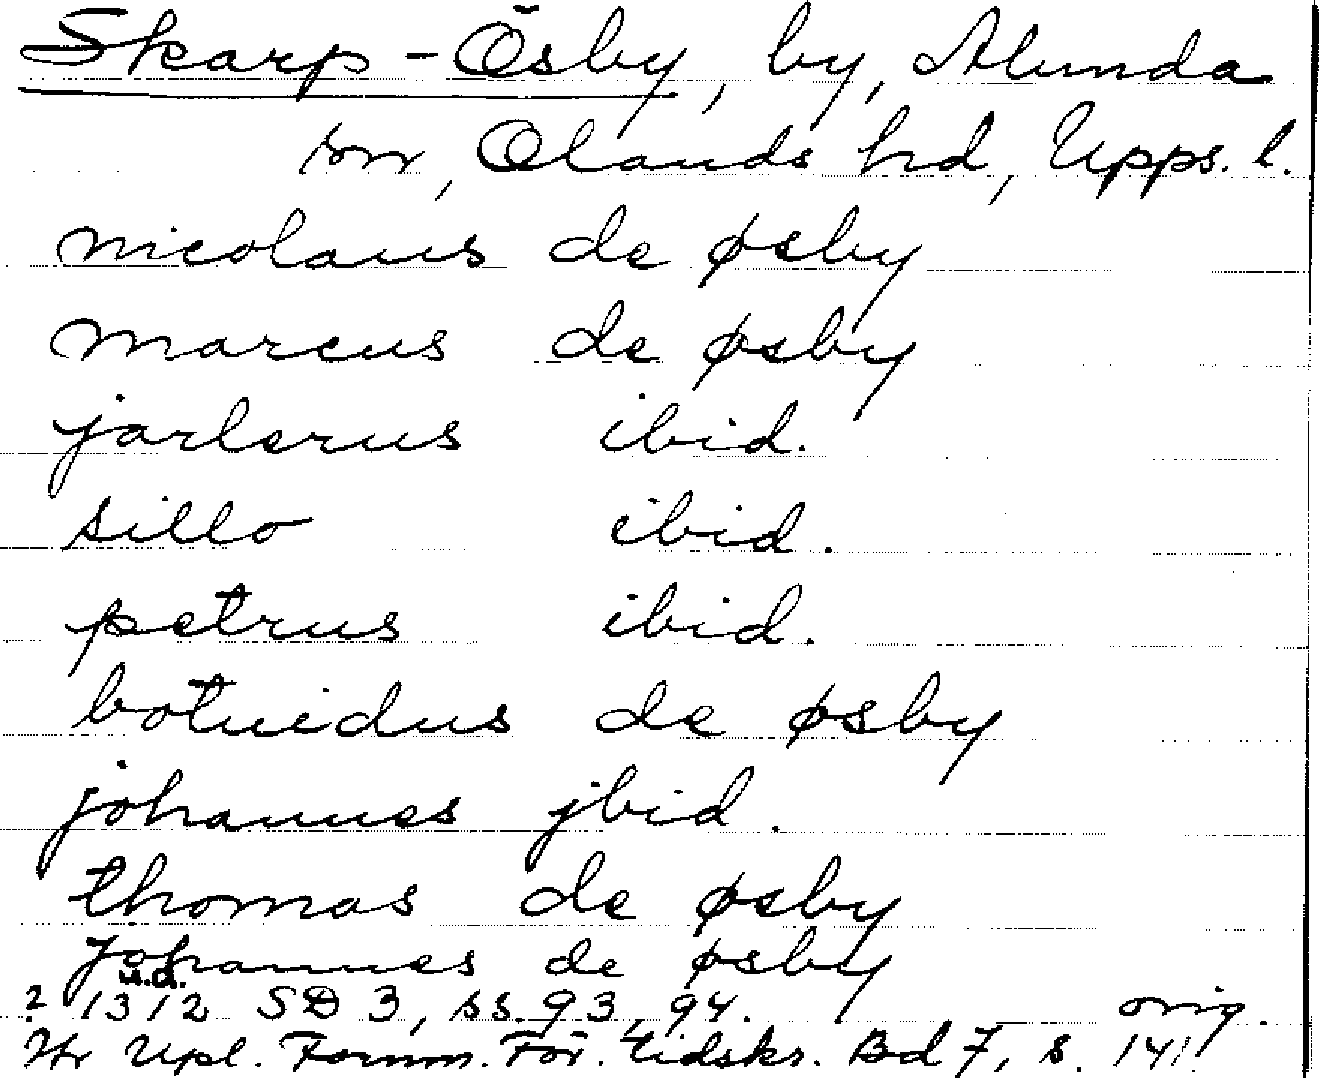 Skarp-Ösby, by, Alunda
sn, Olands hd, Upps. l.
nicolaus de øsby
marcus de øsby
jarlerus ibid.
sillo ibid.
petrus ibid.
botuidus de øsby
johannes jbid.
thomas de øsby
johannes de øsby
u.d.
? 1312 SD 3, ss. 93, 94. orig.
Hr Upl. Fornm. För. tidskr. Bd 7, s. 141